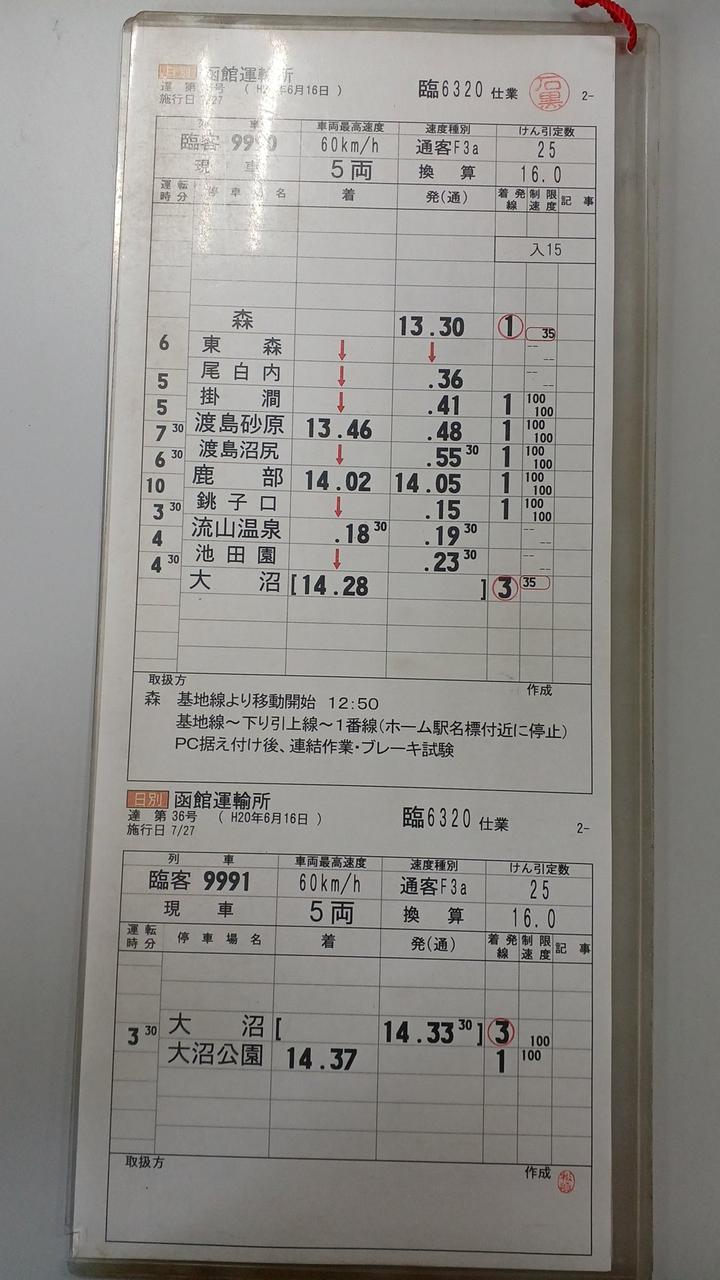 日別 函館運輸所
臨6320 仕業 石黒 2-
達 第 号 ( H20年6月16日 )
施行日 7/27
列 車 車両最高速度 速度種別 けん引定数
臨客 9990 60km/h 通客F3a 25
現 車 5両 換 算 16.0
運転時分 停車場名 着 発(通) 着発線 制限速度 記事
入15
森 13.30 1 35
6
東 森 ↓ ↓ -- --
尾白内 ↓ .36 -- --
5
掛 澗 ↓ .41 1 100 100
5
渡島砂原 13.46 .48 1 100 100
7 30
渡島沼尻 ↓ .55 30 1 100 100
6 30
鹿 部 14.02 14.05 1 100 100
10
銚子口 ↓ .15 1 100 100
3 30
流山温泉 .18 30 .19 30 -- --
4
池田園 ↓ .23 30 -- --
4 30
大 沼 [14.28 ] 3 35
取扱方 作成
森 基地線より移動開始 12:50
基地線～下り引上線～1番線(ホーム駅名標付近に停止)
PC据え付け後、連結作業・ブレーキ試験
日別 函館運輸所
臨6320 仕業 2-
達 第 36号 ( H20年6月16日 )
施行日 7/27
列 車 車両最高速度 速度種別 けん引定数
臨客 9991 60km/h 通客F3a 25
現 車 5両 換 算 16.0
運転時分 停車場名 着 発(通) 着発線 制限速度 記事
大 沼 [ 14.33 30 ] 3 100
3 30
大沼公園 14.37 1 100
取扱方 作成